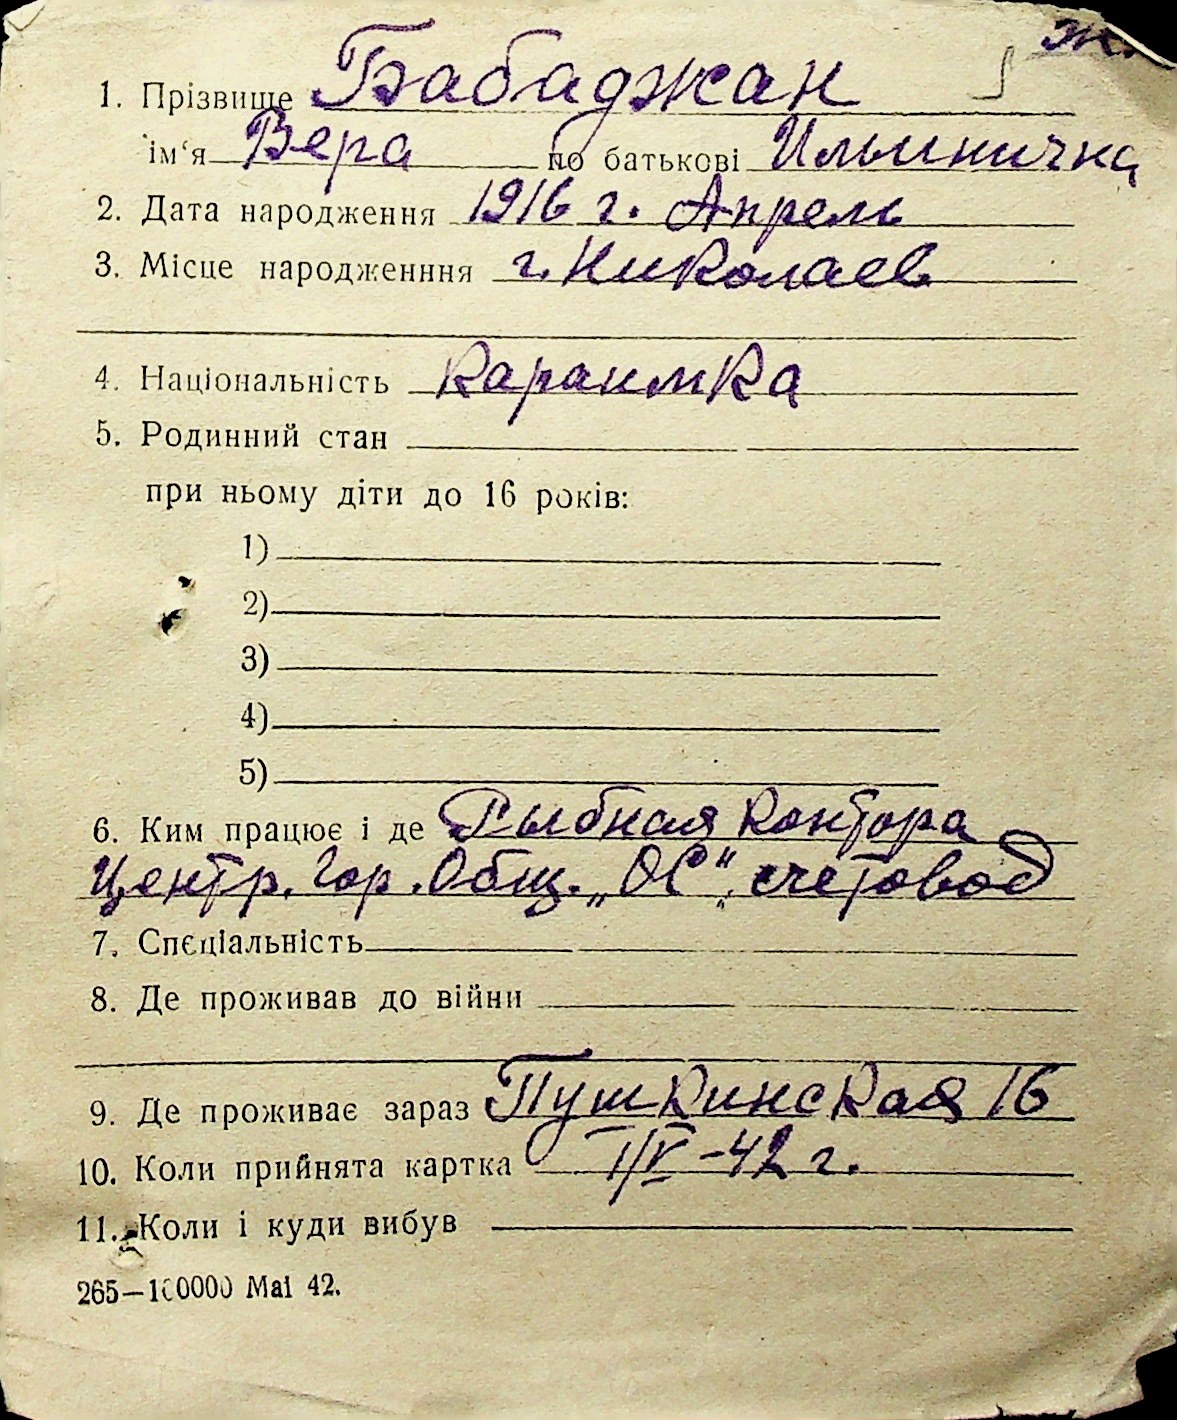 ж.
1. Прізвище Бабаджан
ім‘я Вера по батькові Ильинична
2. Дата народження 1916 г. Апрель
3. Місце народженння г. Николаев
4. Національність караимка
5. Родинний стан
при ньому діти до 16 років:
1)
2)
3)
4)
5)
6. Ким працює і де Рыбная контора
Центр. Гор. Общ. „ОС“, счетовод
7. Спєціальність
8. Де проживав до війни
9. Де проживає зараз Пушкинская 16
10. Коли прийнята картка 1/V -42 г.
11. Коли і куди вибув
265—100000 Маі 42.